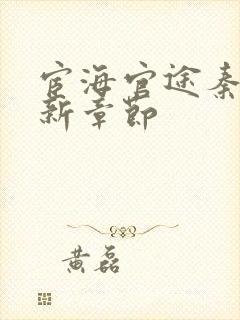 宦海官途秦
新章节
黄磊